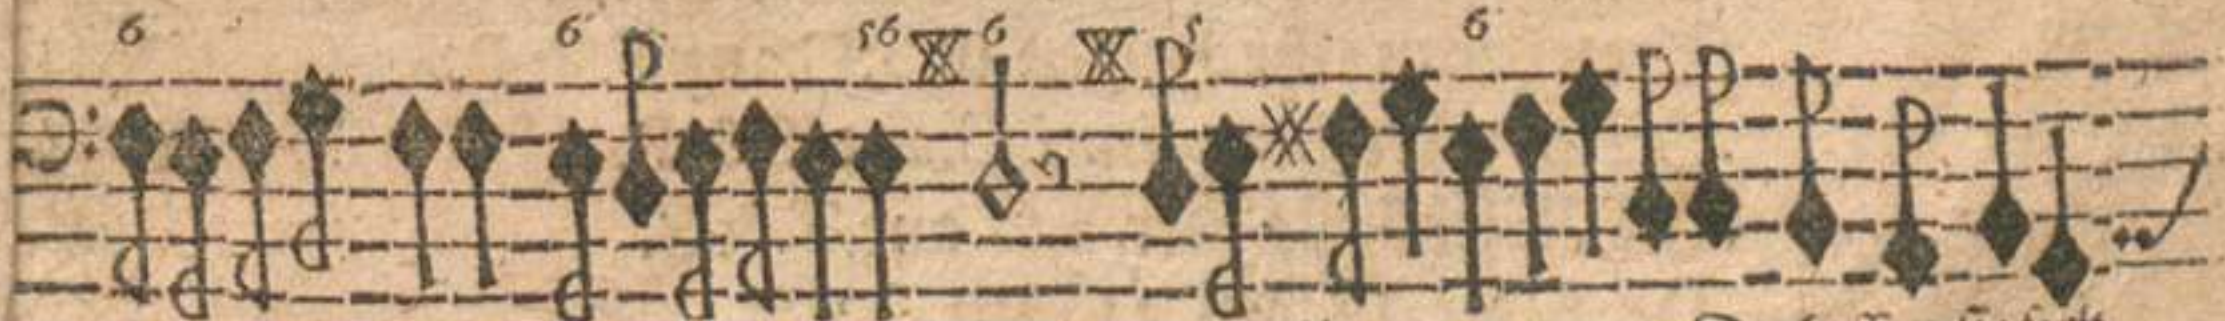 6 6 56 6 5 6